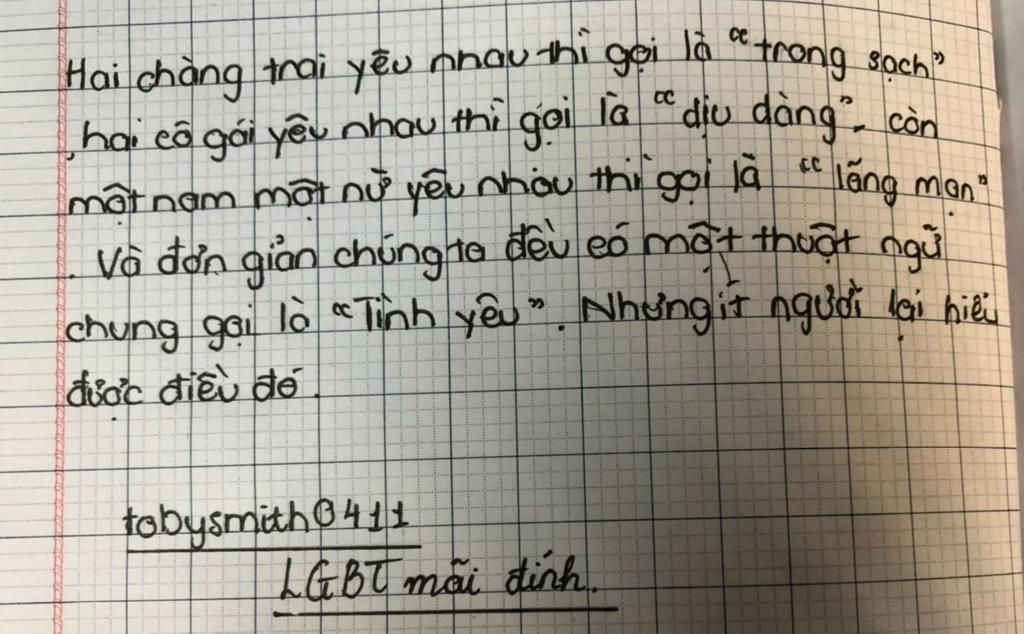 Hai chàng trai yêu nhau thì gọi là "trong sạch"
, hai cô gái yêu nhau thì gọi là "dịu dàng", còn
một nam một nữ yêu nhau thì gọi là "lãng mạn"
. Và đơn giản chúng ta đều có một thuật ngữ
chung gọi là "Tình yêu". Nhưng ít người lại hiểu
được điều đó.
tobysmith0411
LGBT mãi đỉnh.